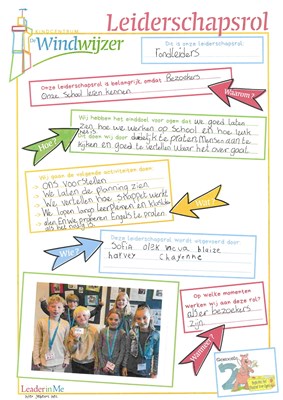 Leiderschapsrol
KINDCENTRUM
De Windwijzer
Dit is onze leiderschapsrol:
rondleiders
Onze leiderschapsrol is belangrijk, omdat Bezoekers
Onze School leren kennen
Waarom?
Wij hebben het einddoel voor ogen dat we goed laten
zien hoe we werken op School en hoe leuk
het is
Dit doen wij door duidelijk te praten Mensen aan te
kijken en goed te vertellen waar het over gaat
Hoe?
Wij gaan de volgende activiteiten doen:
→ ons voorstellen
→ We laten de planning zien
→ We vertellen hoe werkt
→ We lopen langs leerpleinen en
en We proberen Engels te praten
als het nodig is
Wat?
Deze leiderschapsrol wordt uitgevoerd door
Sofia olek neva blaize
harvey Chayenne
Wie?
Op welke momenten
werken wij aan deze rol?
als er bezoekers
zijn
Wanneer?
Gewoonte
2
Leader in Me